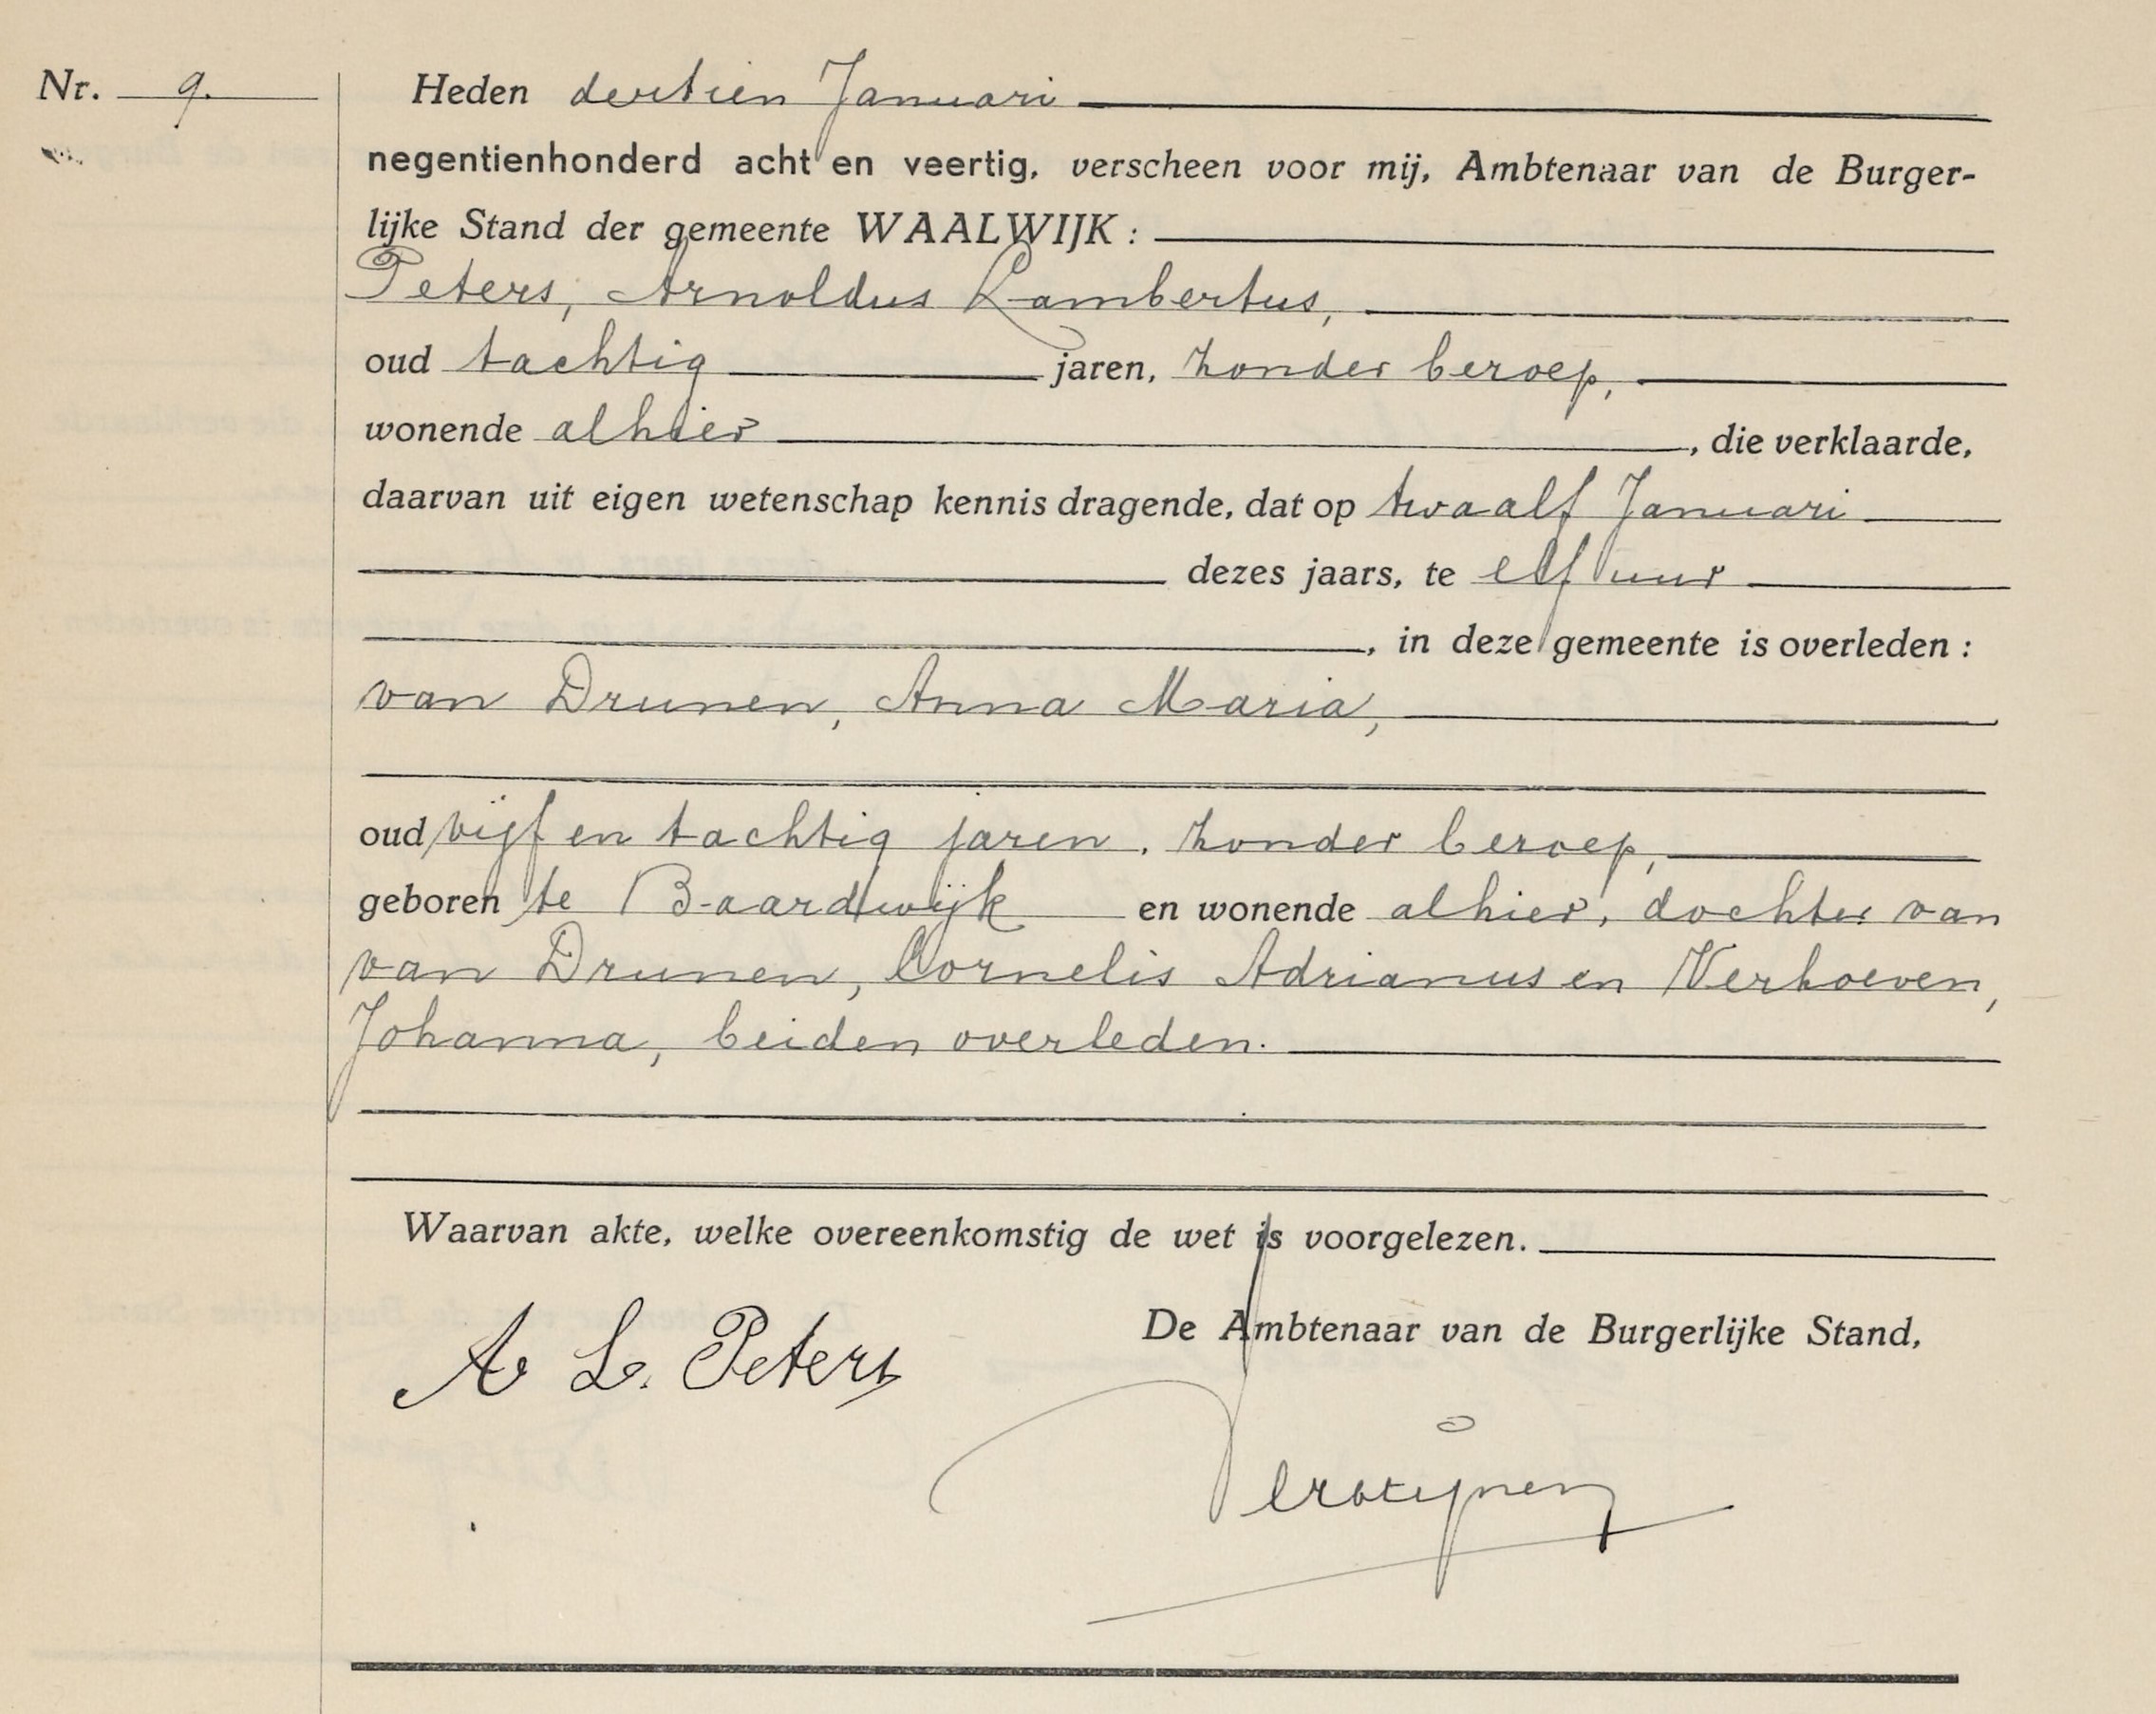 Nr. 9.
Heden dertien Januari
negentienhonderd acht en veertig, verscheen voor mij, Ambtenaar van de Burger-
lijke Stand der gemeente WAALWIJK :
Peters, Arnoldus Lambertus,
oud tachtig jaren, zonder beroep,
wonende alhier , die verklaarde,
daarvan uit eigen wetenschap kennis dragende, dat op twaalf Januari
dezes jaars, te elf uur
, in deze gemeente is overleden :
van Drunen, Anna Maria,
oud vijf en tachtig jaren, zonder beroep,
geboren te Baardwijk en wonende alhier, dochter van
van Drunen, Cornelis Adrianus en Verhoeven,
Johanna, beiden overleden.
Waarvan akte, welke overeenkomstig de wet is voorgelezen.
De Ambtenaar van de Burgerlijke Stand,
A L. Peters